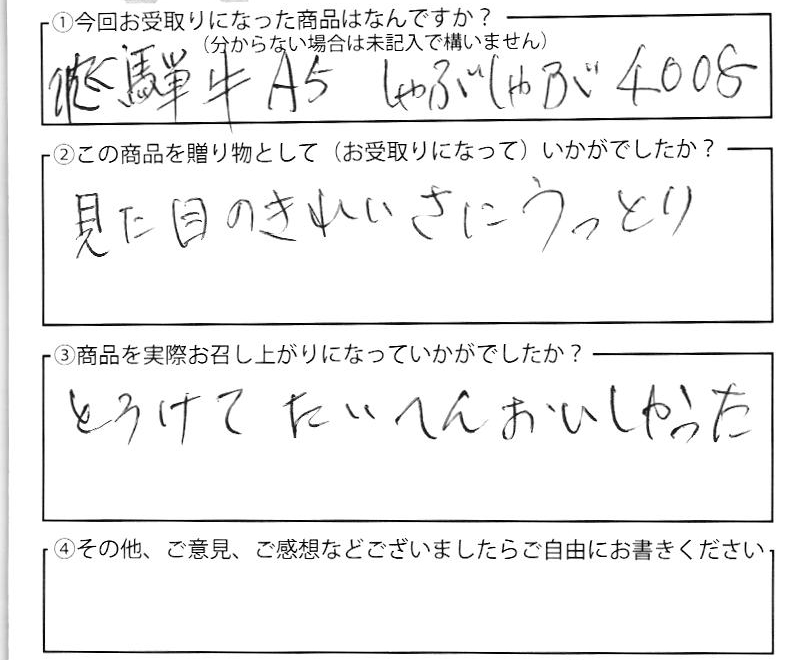 ①今回お受取りになった商品はなんですか?
(分からない場合は未記入で構いません)
飛騨牛 A5 しゃぶしゃぶ 400g
②この商品を贈り物として(お受取りになって)いかがでしたか?
見た目のきれいさにうっとり
③商品を実際お召し上がりになっていかがでしたか?
とろけて たいへんおいしかった
④その他、ご意見、ご感想などございましたらご自由にお書きください